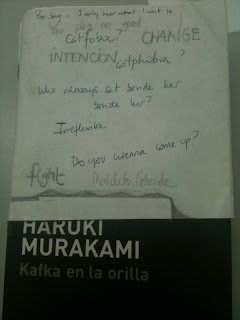 You say - I only hear what I want to
You play me good
Catfobia?
CHANGE
INTENCIÓN
Catphobia?
Who always sat beside her
beside her?
Irreflexiba
Do you wanna come up?
fight
Maldito
HARUKI
MURAKAMI
Kafka en la orilla